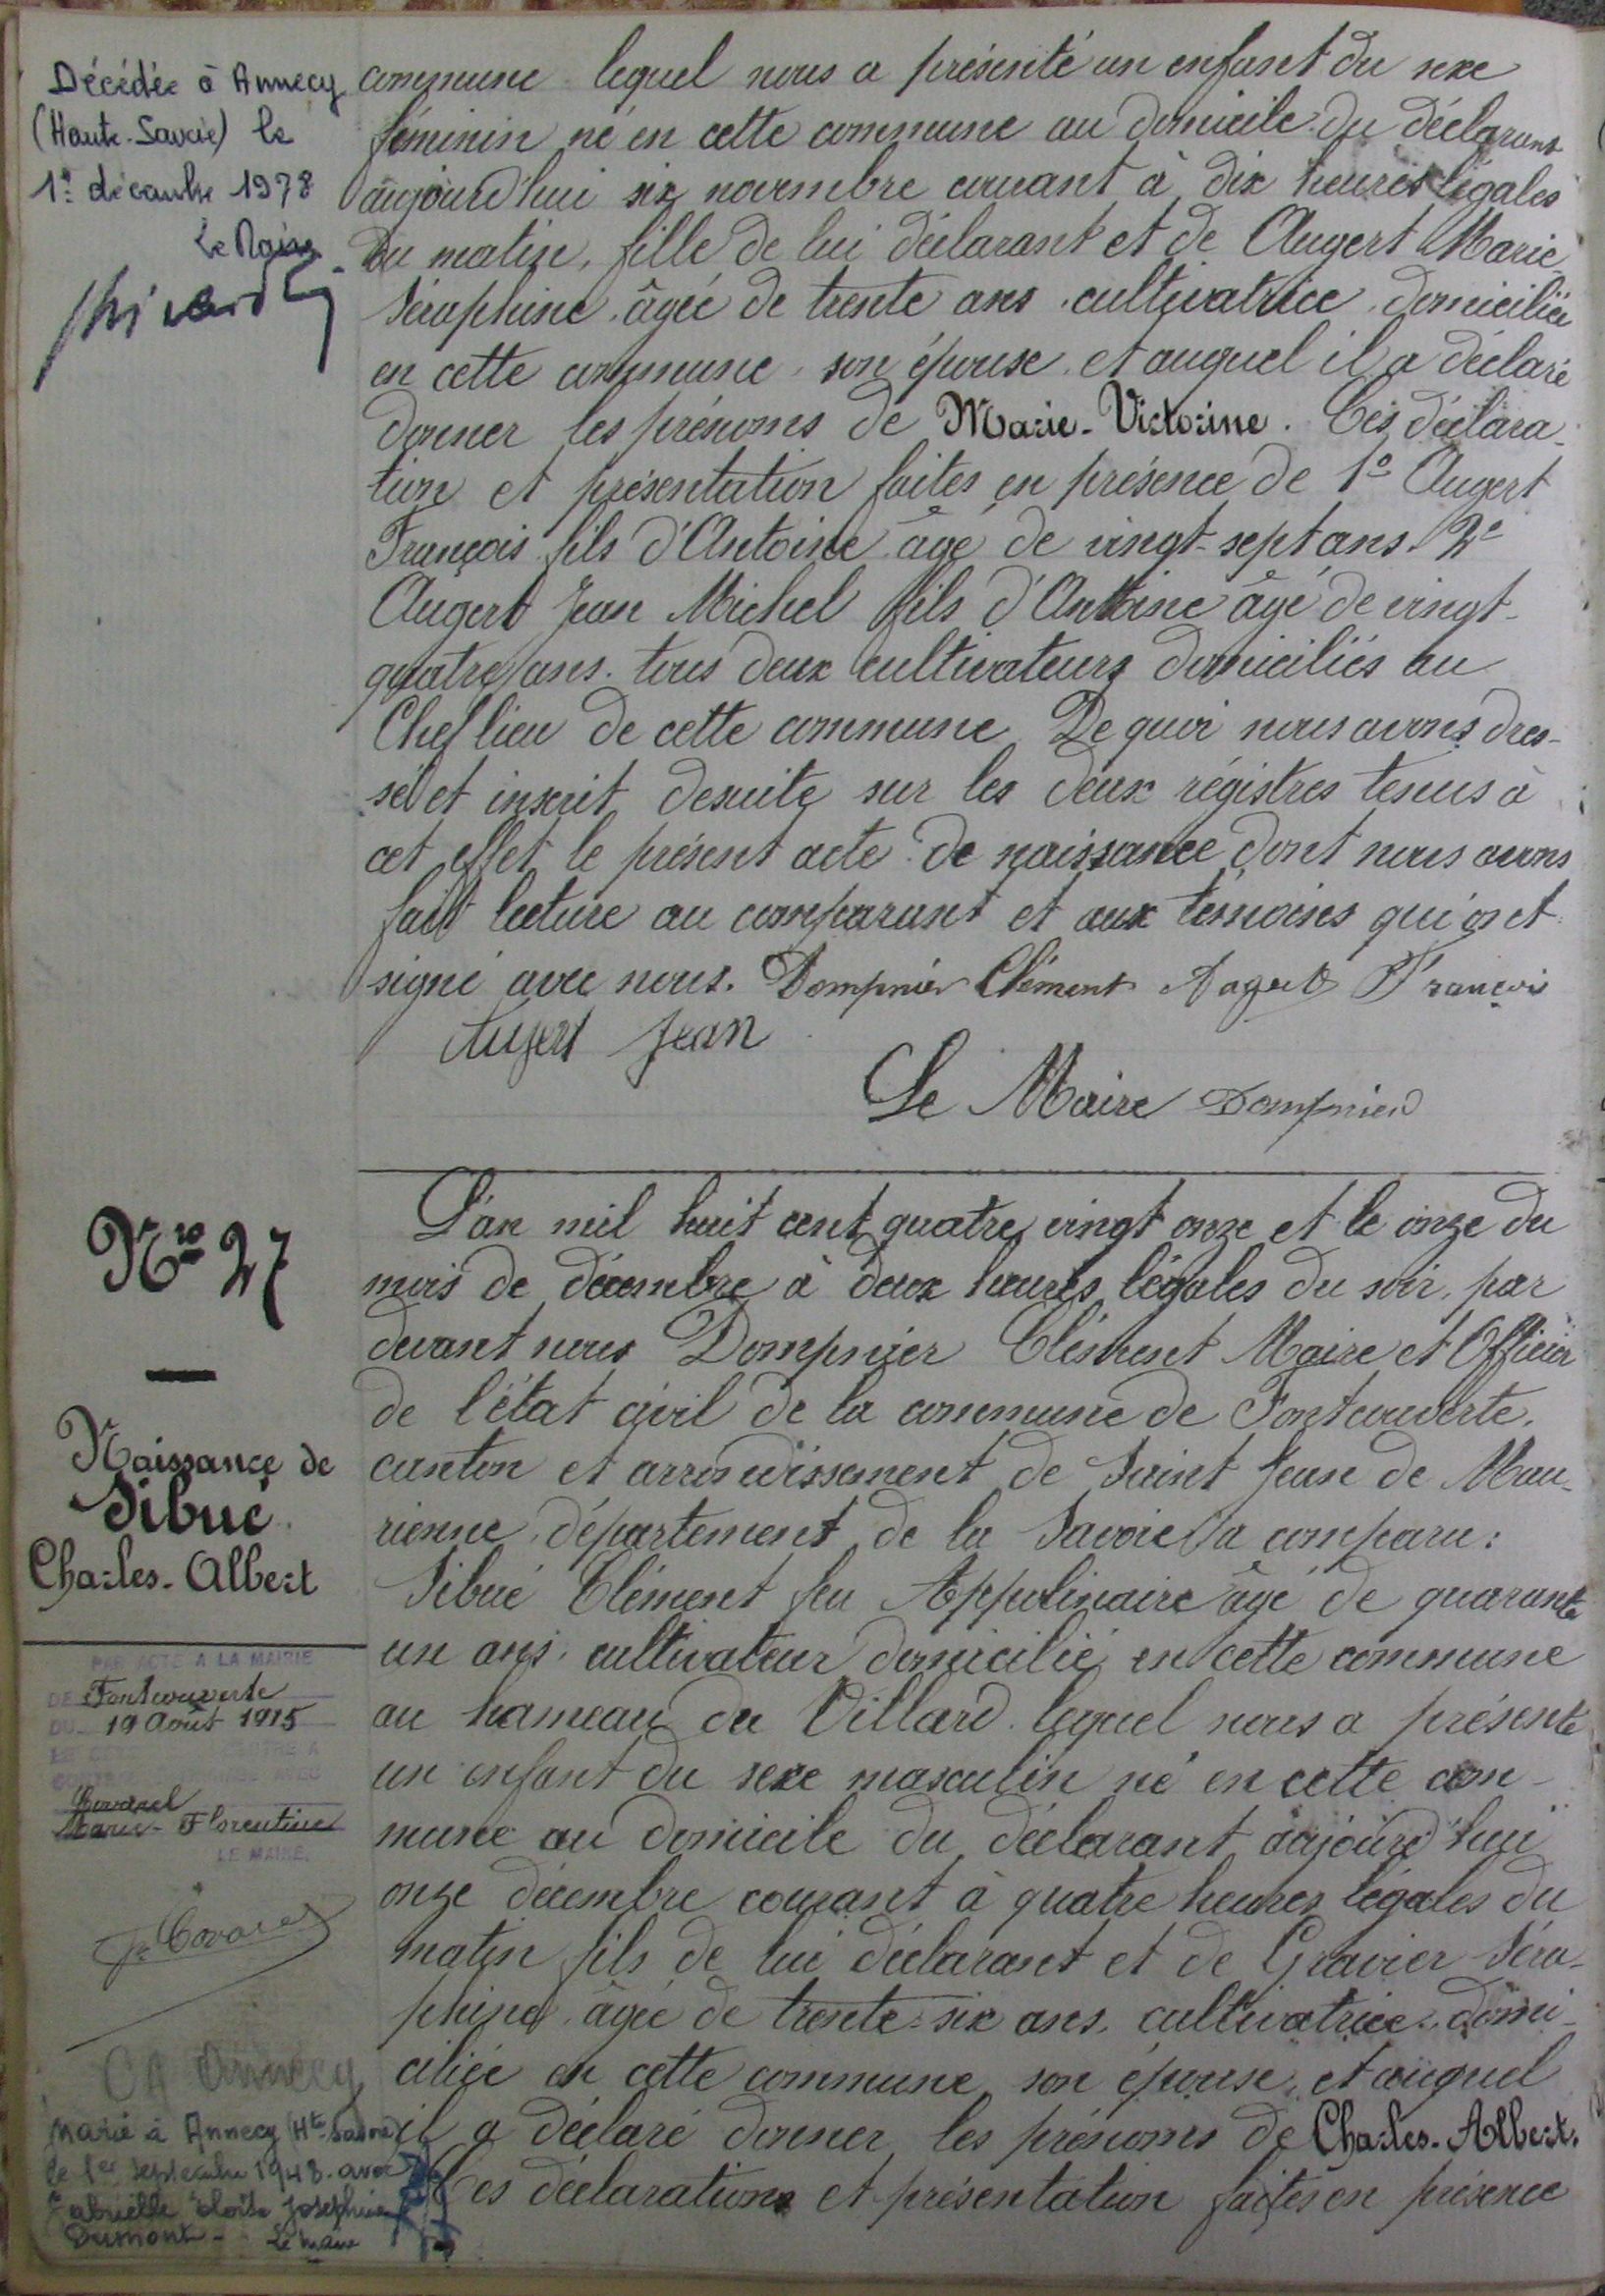 Décédée à Annecy
(Haute-Savoie) le
1er décembre 1978
Le Maire
commune lequel nous a présenté un enfant du sexe
féminin né en cette commune au domicile du déclarant
aujourd'hui six novembre courant à dix heures légales
du matin, fille de lui déclarant et de Augert Marie
Séraphine, âgée de trente ans, cultivatrice, domiciliée
en cette commune, son épouse, et auquel il a déclaré
donner les prénoms de Marie-Victorine. Ces déclara-
tion et présentation faites en présence de 1º Augert
François fils d'Antoine âgé de vingt-sept ans. 2º
Augert Jean Michel fils d'Antoine âgé de vingt-
quatre ans. tous deux cultivateurs domiciliés au
Chef lieu de cette commune. De quoi nous avons dres-
sé et inscrit desuite sur les deux régistres tenus à
cet effet le présent acte de naissance dont nous avons
fait lecture au comparant et aux témoins qui ont
signé avec nous. Dompnier Clément Augert François
Augert Jean
Le Maire Dompnier
Nro 27
Naissance de
Sibué
Charles-Albert
L'an mil huit cent quatre vingt onze et le onze du
mois de décembre à deux heures légales du soir, par
devant nous Dompnier Clément Maire et Officier
de l'état civil de la commune de Fontcouverte,
canton et arrondissement de Saint Jean de Mau-
rienne, département de la Savoie a comparu:
Sibué Clément feu Appolinaire âgé de quarante
un ans, cultivateur domicilié en cette commune
au hameau du Villard, lequel nous a présenté
un enfant du sexe masculin né en cette com-
mune au domicile du déclarant aujourd'hui
onze décembre courant à quatre heures légales du
matin fils de lui déclarant et de Gravier Séra-
phine, âgée de trente-six ans, cultivatrice, domi-
ciliée en cette commune, son épouse, et auquel
il a déclaré donner les prénoms de Charles-Albert.
Ces déclarations et présentation faites en présence
PAR ACTE A LA MAIRIE
DE Fontcouverte
DU 19 Août 1915
Marie-Florentine
LE MAIRE,
CA Annecy
Marié à Annecy (Hte-Savoie)
le 1er septembre 1948 avec
Gabrielle Joséphine
Dumont - Le maire